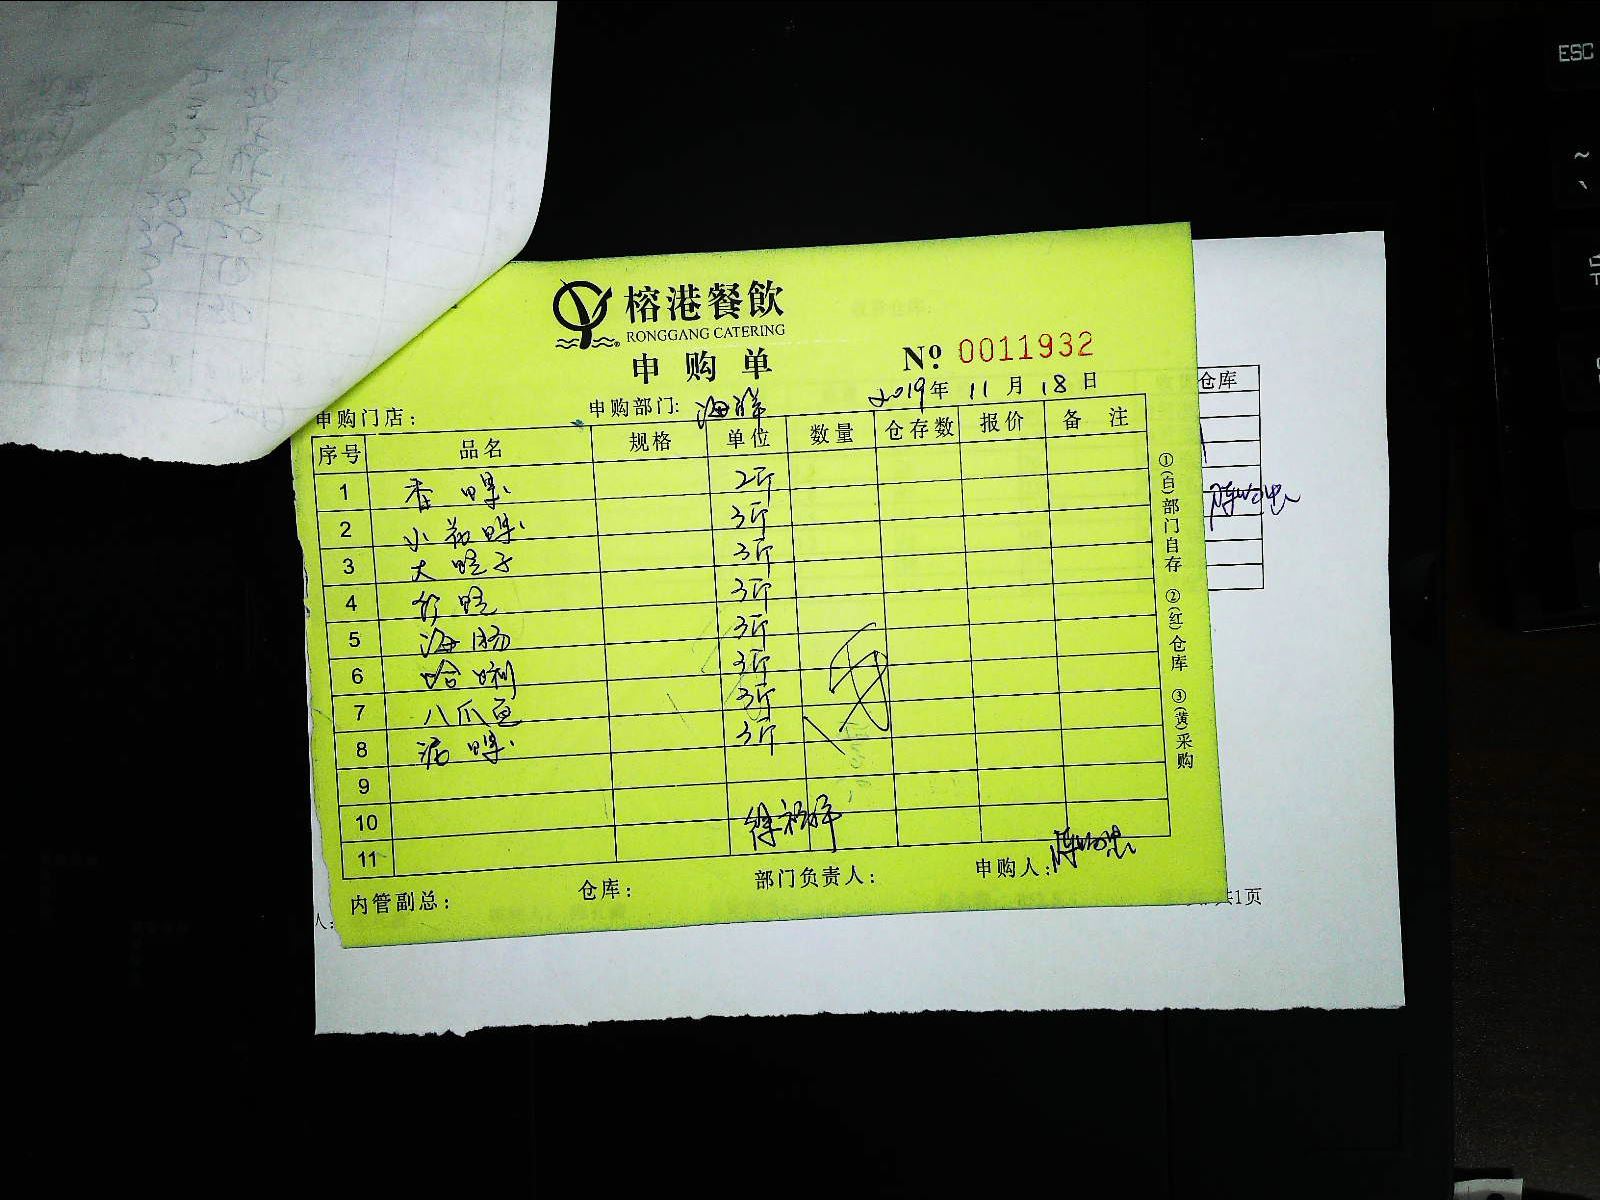 榕港餐飲
RONGGANG CATERING
申购单
Nº 0011932
2019年 11月 18日
申购门店:
申购部门: 海鲜
序号 品名 规格 单位 数量 仓存数 报价 备注
1 香螺 2斤
2 小花螺 3斤
3 大蛏子 3斤
4 竹蛏 3斤
5 海肠 3斤
6 哈喇 3斤
7 八爪鱼 3斤
8 泥螺 3斤
9
10
11
内管副总:
仓库:
部门负责人:
申购人:
①(白)部门自存 ②(红)仓库 ③(黄)采购
仓库
人:
共1页
ESC
~